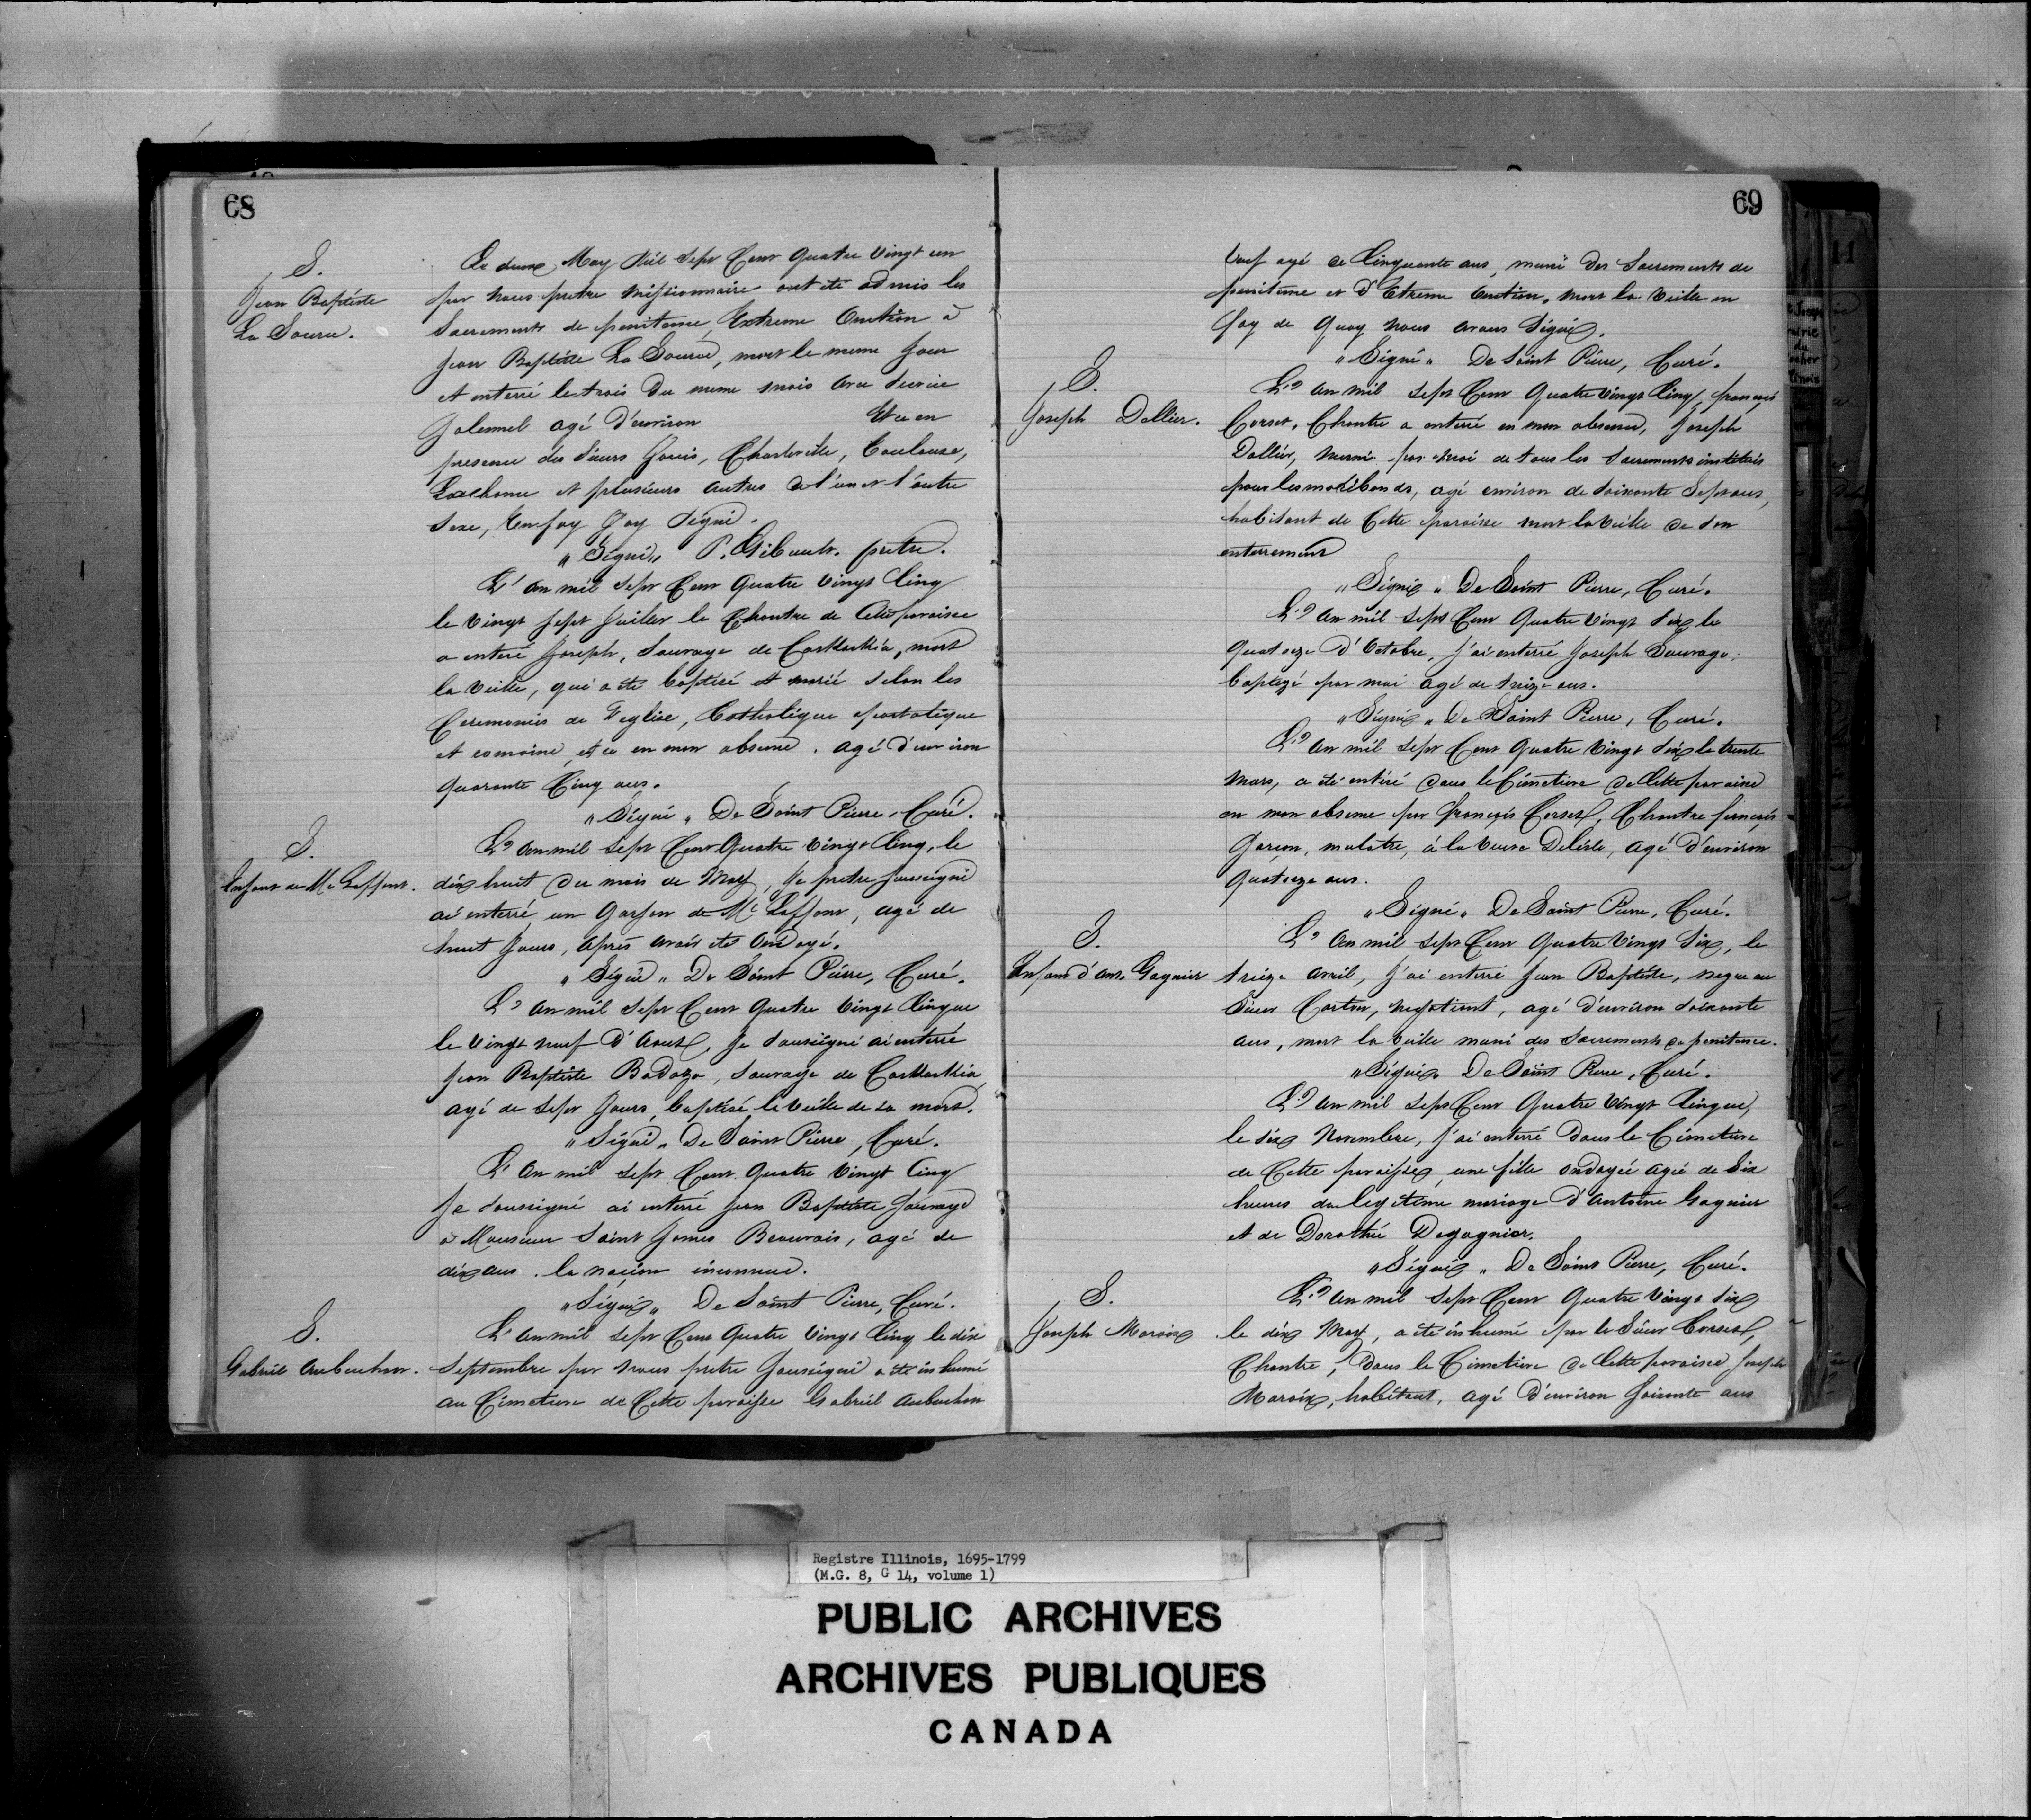 68
S.
Jean Baptiste
La Source.
Le deux May Mil Sept Cent Quatre Vingt un
par nous pretre Missionnaire ont été admis les
Sacrements de penitence, Extreme Onction à
Jean Baptiste La Source, mort le meme jour
et enterré le trois du meme mois avec Service
Solennel agé d'environ Et ce en
presence des Sieurs Janis, Charleville, Toulouse,
Lachanse et plusieurs autres de l'un et l'autre
Sexe, En foy J'ay signé.
"Signé" P. Gibault. pretre.
L'an mil Sept Cent Quatre Vingt Cinq
le Vingt Sept Juillet le Chantre de Cette paroisse
a enteré Joseph, Sauvage de Caskaskia, mort
la Veille, qui a été baptisé et marié Selon les
Ceremonies de l'eglise, Catholique apostolique
et romaine, et ce en mon absence. agé d'environ
quarante Cinq ans.
"Signé" De Saint Pierre, Curé.
S.
Enfant de Mr Laffont.
L'an mil Sept Cent Quatre Vingt Cinq, le
dix huit du mois de May, Je pretre Soussigné
ai enterré un Garson de Mr Laffont, agé de
huit Jours, après avoir été Ondoyé.
"Signé" De Saint Pierre, Curé.
L'an mil Sept Cent Quatre Vingt Cinque
le Vingt neuf d'Aoust, Je Soussigné ai enterré
Jean Baptiste Badozo, Sauvage de Caskaskia
agé de Sept Jours, baptisé la Veille de sa mort.
"Signé" De Saint Pierre, Curé.
L'an mil Sept Cent Quatre Vingt Cinq
Je Soussigné ai enterré Jean Baptiste Sauvage
à Monsieur Saint James Beauvais, agé de
dix ans. la nacion inconnue.
"Signé" De Saint Pierre, Curé.
S.
Gabriel Aubuchon.
L'an mil Sept Cent Quatre Vingt Cinq le dix
Septembre par nous pretre Soussigné a été inhumé
au Cimetiere de Cette paroisse Gabriel Aubuchon
69
Veuf agé de Cinquante ans, muni des Sacrements de
penitence et d'Etreme Onction, mort la Veille en
foy de Quoy nous avons Signé.
"Signé" De Saint Pierre, Curé.
S.
Joseph Dellier.
L'an mil Sept Cent Quatre Vingt Cinq, françois
Corset, Chantre a enterré en mon absence, Joseph
Dallier, muni par moi de tous les Sacrements institués
pour les moribonds, agé environ de Soixante Sept ans,
habitant de Cette paroisse mort la Veille de Son
enterrement
"Signé" De Saint Pierre, Curé.
L'an mil Sept Cent Quatre Vingt Six le
Quatorze d'Octobre, J'ai enterré Joseph Sauvage,
baptezé par moi agé de treize ans.
"Signé" De Saint Pierre, Curé.
L'an mil Sept Cent Quatre Vingt Six le trente
Mars, a été entéré dans le Cimetiere de Cette paroisse
en mon absence par françois Corset, Chantre françois
Garçon, mulatre, à la Veuve Delisle, agé d'environ
Quatorze ans.
"Signé" De Saint Pierre, Curé.
S.
Enfant d'Ant. Gagnier
L'an mil Sept Cent Quatre Vingt Six, le
treize Avril, J'ai enterré Jean Baptiste, negre au
Sieur Carton, negotiant, agé d'environ Soixante
ans, mort la Veille muni des Sacrements de penitence.
"Signé" De Saint Pierre, Curé.
L'an mil Sept Cent Quatre Vingt Cinque,
le Six Novembre, J'ai enterré dans le Cimetiere
de Cette paroisse, une fille ondoyée agée de Six
heures du legitime mariage d'Antoine Gagnier
et de Dorothé Degagnier.
"Signé" De Saint Pierre, Curé.
S.
Joseph Maroix
L'an mil Sept Cent Quatre Vingt Six
le dix May, a été inhumé par le Sieur Corset,
Chantre, dans le Cimetiere de Cette paroisse Joseph
Maroix, habitant, agé d'environ Soixante ans
Registre Illinois, 1695-1799
(M.G. 8, G 14, volume 1)
PUBLIC ARCHIVES
ARCHIVES PUBLIQUES
CANADA